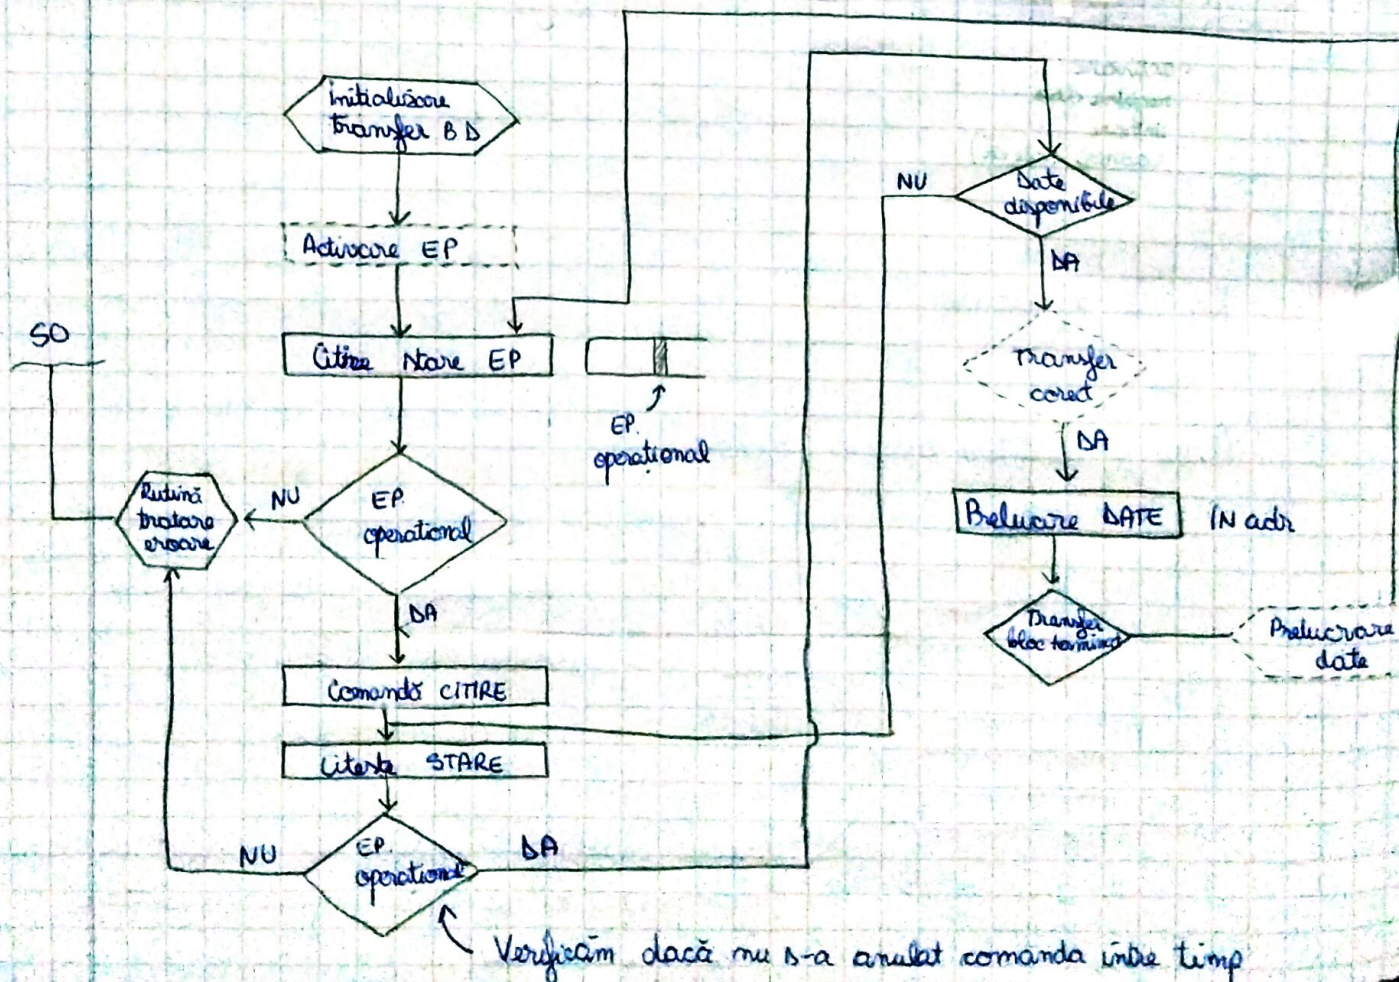 Initializare
transfer BD
Activare EP
SO
Citire stare EP
EP
operațional
Rutină
tratare
eroare
NU
EP
operational
DA
Comandă CITIRE
Citește STARE
NU
EP
operational
DA
Verificăm dacă nu s-a anulat comanda între timp
NU
Date
disponibile
DA
Transfer
corect
DA
Preluare DATE
IN adr
Transfer
bloc terminat
Prelucrare
date